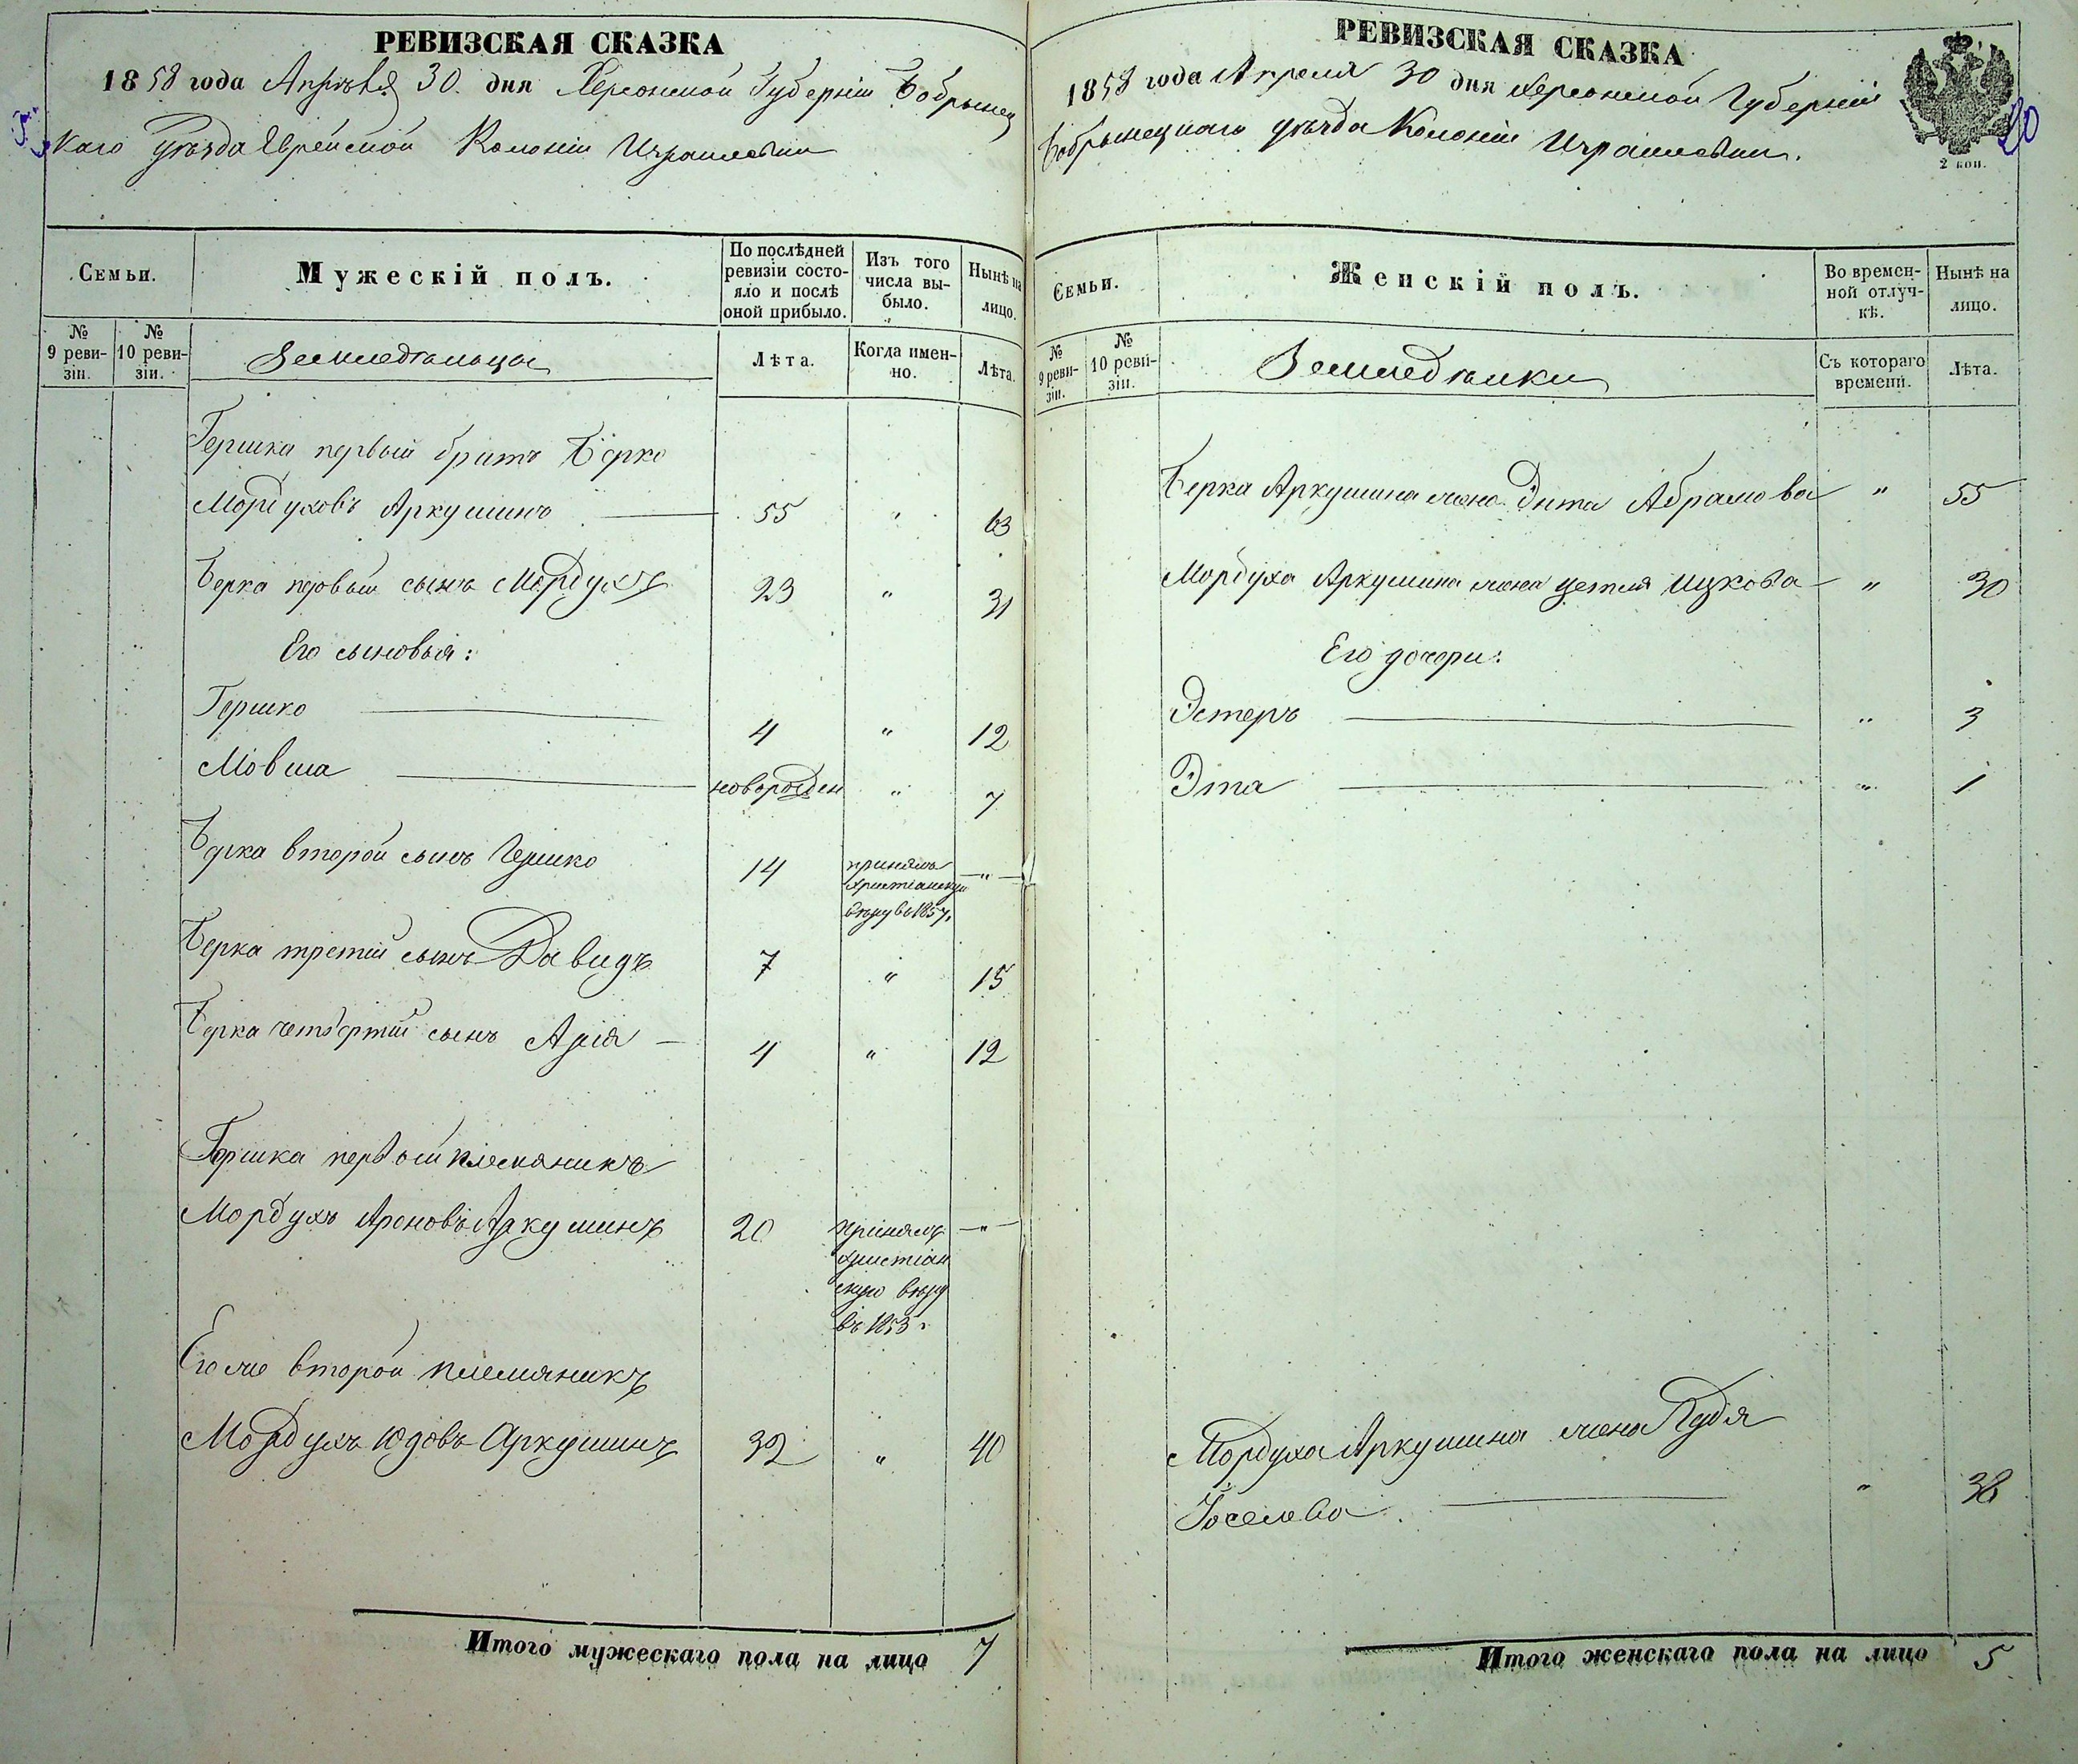 РЕВИЗСКАЯ СКАЗКА
1858 года Апрѣля 30. дня Херсонской Губерніи Бобринец
каго уѣзда Еврейской Колоніи Израилевки
Семьи.
Мужескій полъ.
По послѣдней ревизіи состо-
яло и послѣ оной прибыло.
Изъ того числа вы-
было.
Нынѣ на лицо.
№ 9 реви-
зіи.
№ 10 реви-
зіи.
Земледѣльцы
Лѣта.
Когда имен-
но.
Лѣта.
Гершка первый братъ Берко
Мордуховъ Аркушинъ 55 " 63
Берка первый сынъ Мордухъ 23 " 31
Его сыновья:
Гершко 4 " 12
Мовша новорожден " 7
Берка второй сынъ Гершко 14 принялъ
христіанскую
вѣру въ 1857. "
Берка третій сынъ Давидъ 7 " 15
Берка четвертій сынъ Арія 4 " 12
Гершка первый племяникъ
Мордухъ Ароновъ Аркушинъ 20 принялъ "
христіан
скую вѣру
въ 1853 г.
Его же второй племяникъ
Мордухъ Юдовъ Аркушинъ 32 " 40
Итого мужескаго пола на лицо 7
РЕВИЗСКАЯ СКАЗКА
1858 года Апреля 30 дня Херсонской Губерніи
Бобринецкаго уѣзда Колоніи Израилевки.
2 коп.
20
Семьи.
Женскій полъ.
Во времен-
ной отлуч-
кѣ.
Нынѣ на лицо.
№ 9 реви-
зіи.
№ 10 реви-
зіи.
Земледѣлки
Съ котораго времени.
Лѣта.
Берка Аркушина жена Абрамова " 55
Мордуха Аркушина жена Цетля Ицкова " 30
Его дочери:
Эстеръ " 3
Эта " 1
Мордуха Аркушина жена
Іоселева " 38
Итого женскаго пола на лицо 5